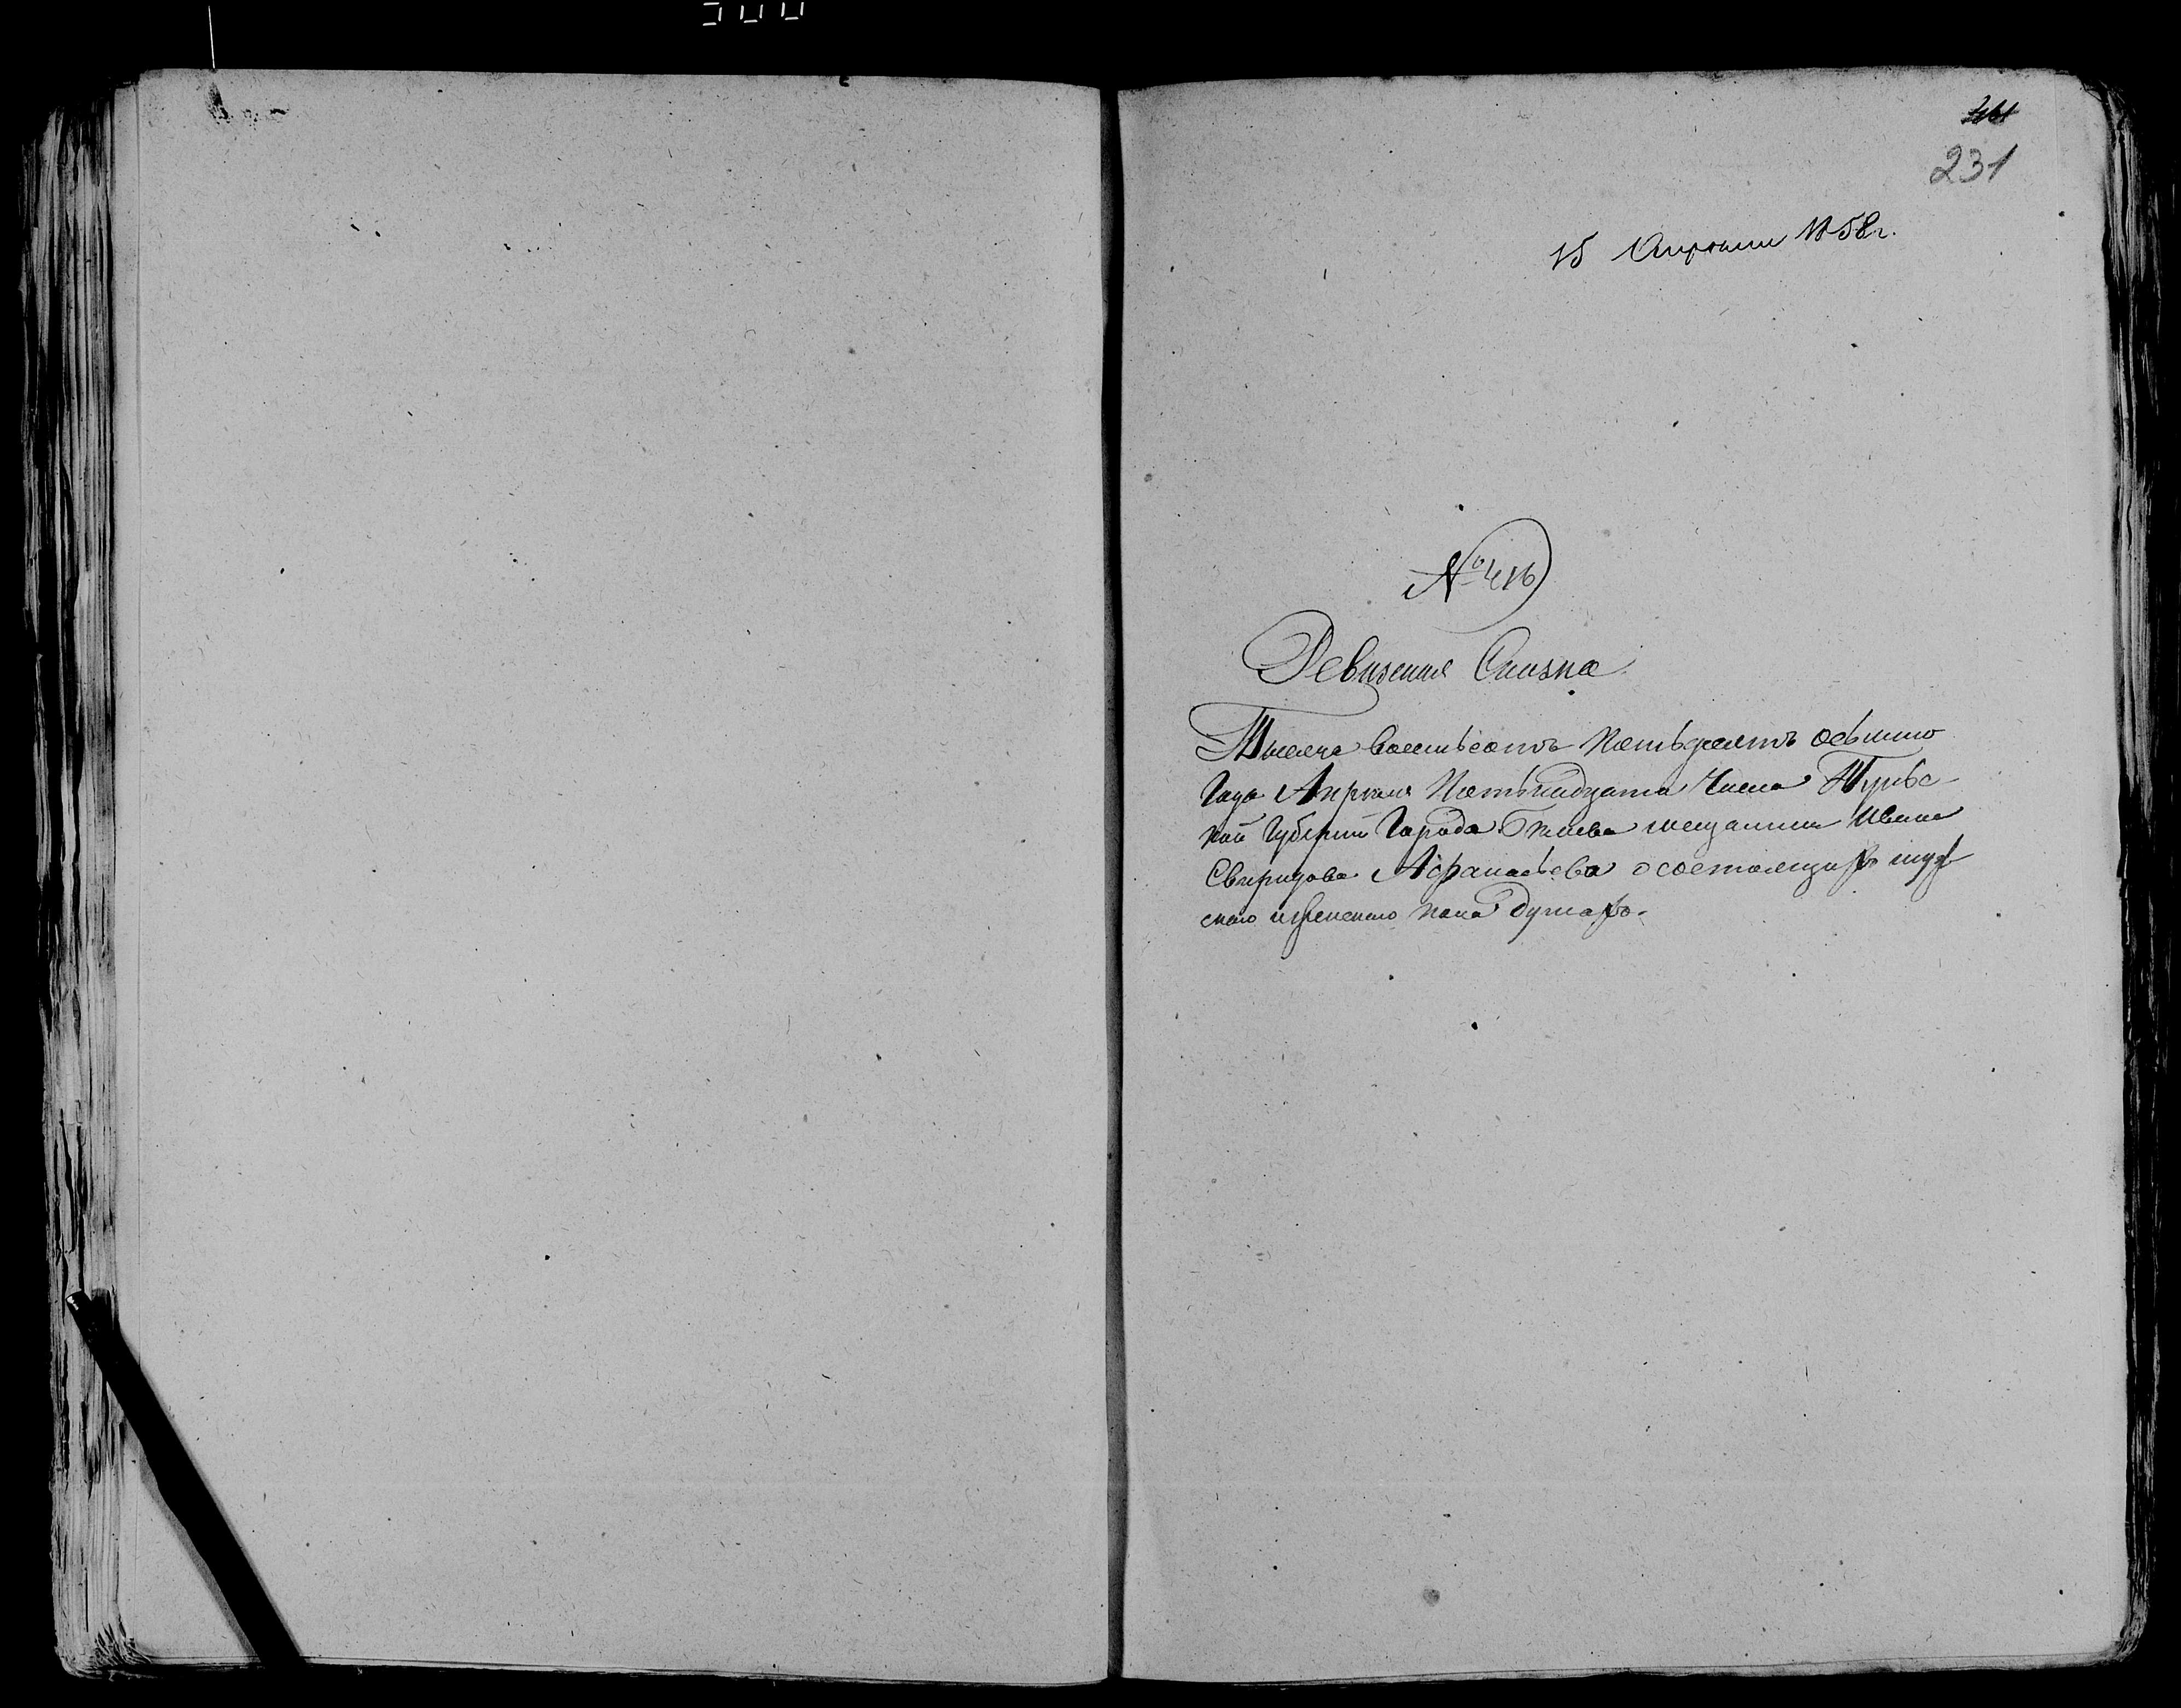 231
15 Апреля 1858 г.
№ 416
Ревизская Сказка
Тысяча Восемьсотъ Пятьдесятъ осьмого
Года Апреля Пятьнадцата Числа Тульс
кой Губернии Города Бѣлева мещанина Ивана
Свиридова Афанасьева о состоящихъ муж
скаго и женскаго пола душахъ.